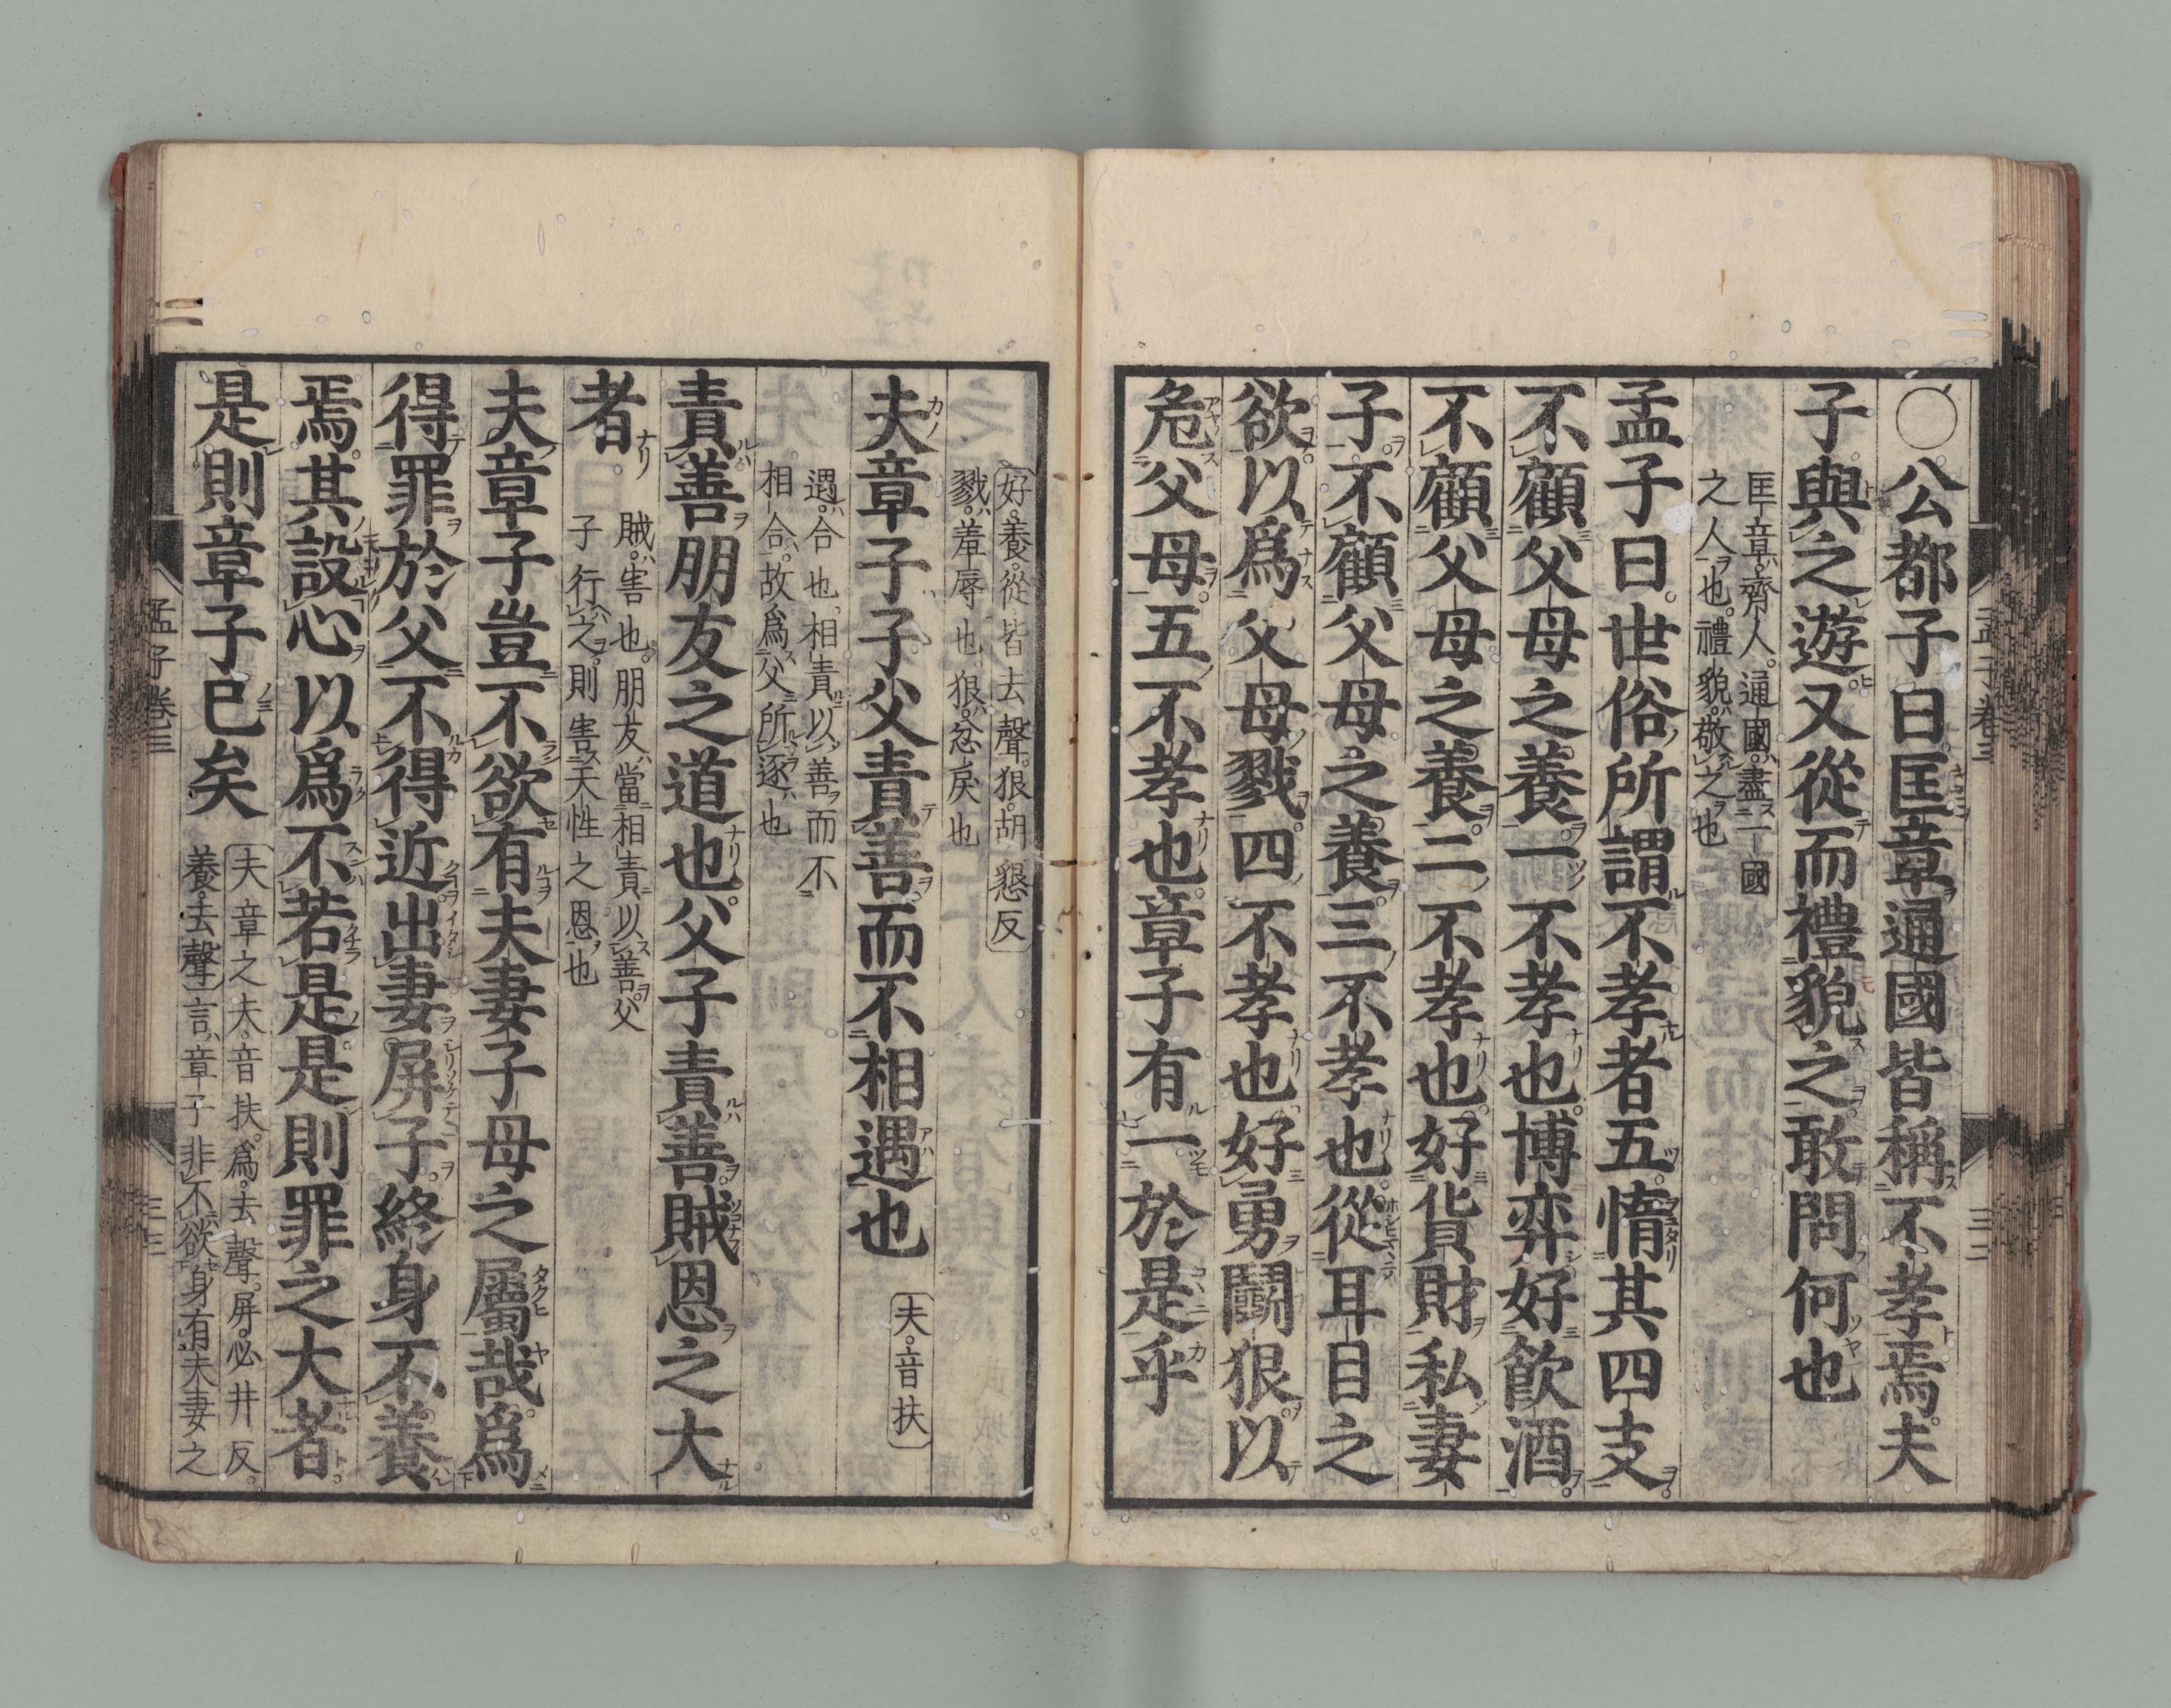 〇公都子曰匡章通國皆稱不孝焉夫
子與之遊又從而禮貌之敢問何也
匡章齊人通國盡一國
之人也禮貌敬之也
孟子曰世俗所謂不孝者五惰其四支
不顧父母之養一不孝也博弈好飮酒
不顧父母之養二不孝也好貨財私妻
子不顧父母之養三不孝也從耳目之
欲以爲父母戮四不孝也好勇鬪狠以
危父母五不孝也章子有一於是乎
好養從皆去聲狠胡懇反
戮羞辱也狠忿戾也
夫章子子父責善而不相遇也
夫音扶
遇合也相責以善而不
相合故爲父所逐也
責善朋友之道也父子責善賊恩之大
者
賊害也朋友當相責以善父
子行之則害天性之恩也
夫章子豈不欲有夫妻子母之屬哉爲
得罪於父不得近出妻屏子終身不養
焉其設心以爲不若是是則罪之大者
是則章子已矣
夫章之夫音扶爲去聲屏必井反
養去聲言章子非不欲身有夫妻之
孟子卷三
三二